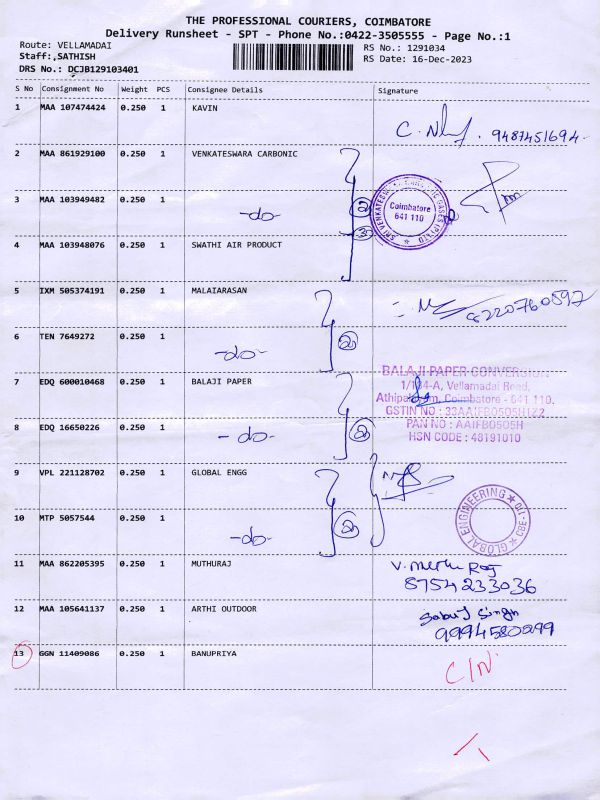 THE PROFESSIONAL COURIERS, COIMBATORE
Delivery Runsheet - SPT - Phone No.:0422-3505555 - Page No.:1
Route: VELLAMADAI
RS No.: 1291034
Staff:,SATHISH
RS Date: 16-Dec-2023
DRS No.: DCJB129103401
S No Consignment No Weight PCS Consignee Details Signature
1 MAA 107474424 0.250 1 KAVIN
9487451694
2 MAA 861929100 0.250 1 VENKATESWARA CARBONIC
3 MAA 103949482 0.250 1 -do-
Coimbatore
641 110
4 MAA 103948076 0.250 1 SWATHI AIR PRODUCT
5 IXM 505374191 0.250 1 MALAIARASAN
8220760597
6 TEN 7649272 0.250 1 -do-
BALAJI PAPER CONVERSION
7 EDQ 600010468 0.250 1 BALAJI PAPER
1/134-A, Vellamadai Road,
Coimbatore - 641 110.
GSTIN NO : 33AAIFB0505H1Z2
8 EDQ 16650226 0.250 1 -do-
PAN NO : AAIFB0505H
HSN CODE : 48191010
9 VPL 221128702 0.250 1 GLOBAL ENGG
10 MTP 5057544 0.250 1 -do-
GLOBAL ENGINEERING ★ CBE-110 ★
11 MAA 862205395 0.250 1 MUTHURAJ
8754233036
12 MAA 105641137 0.250 1 ARTHI OUTDOOR
Singh
9994580299
13 GGN 11409086 0.250 1 BANUPRIYA
C/N